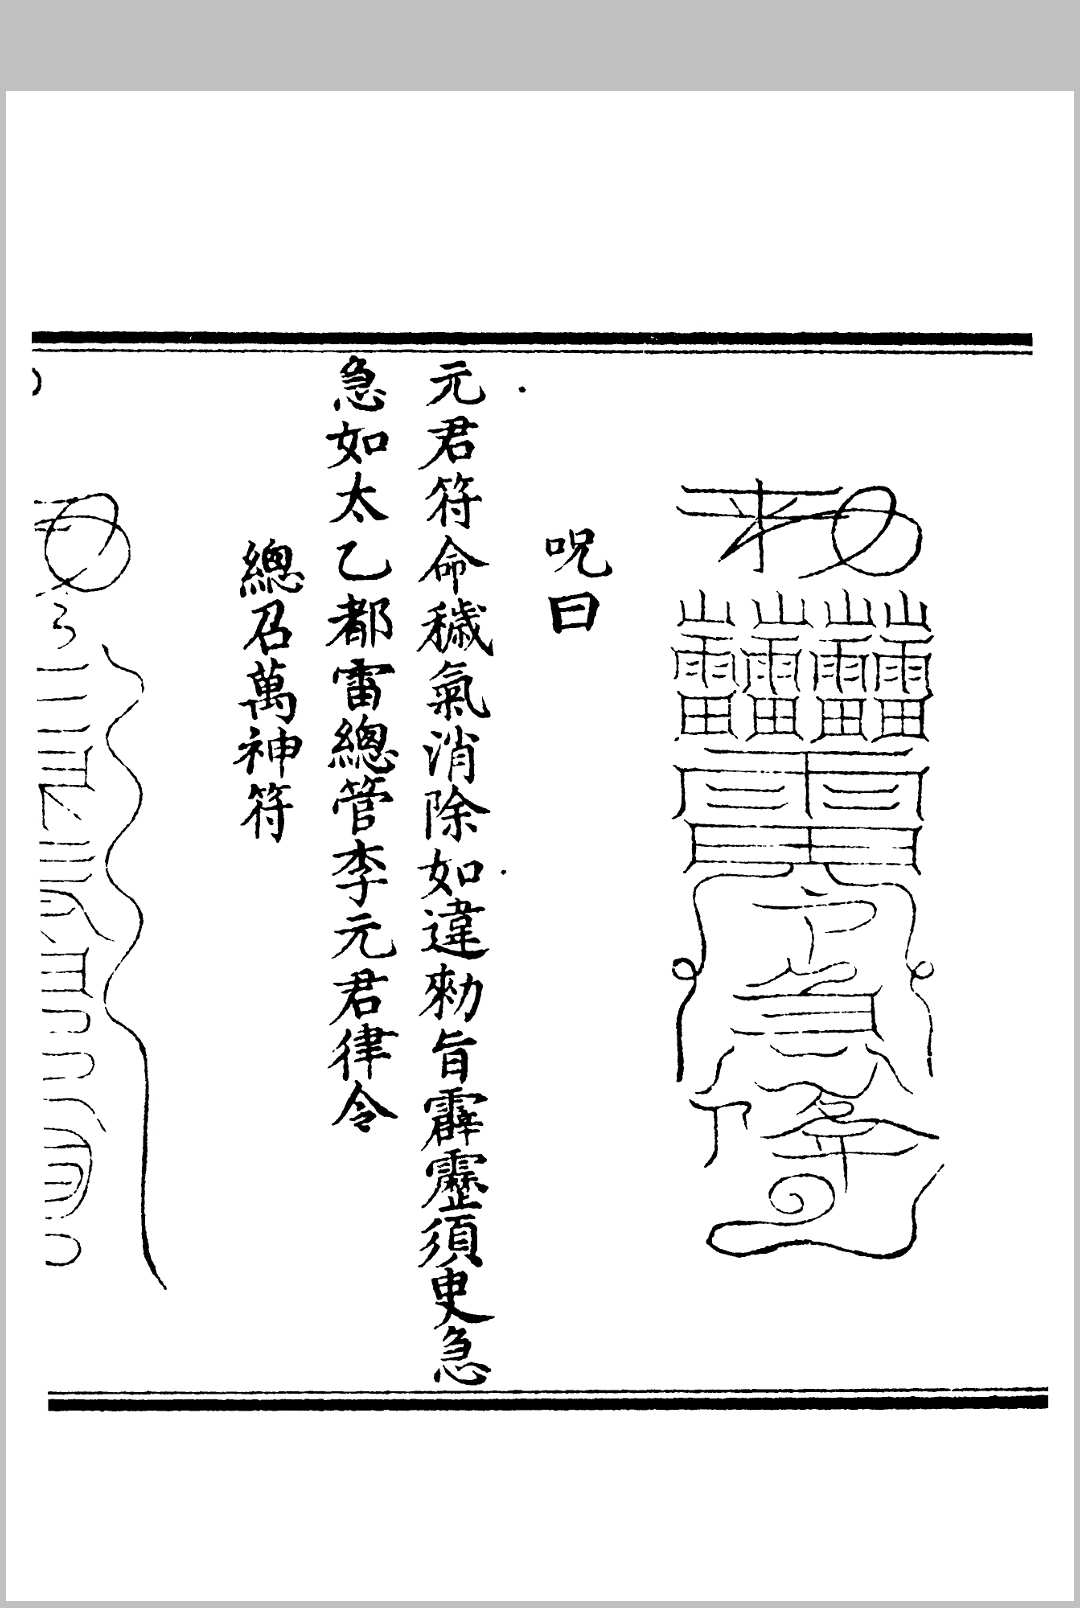 呪曰
元君符命穢氣消除如違勑旨霹靂須臾急
急如太乙都雷總管李元君律令
總召萬神符